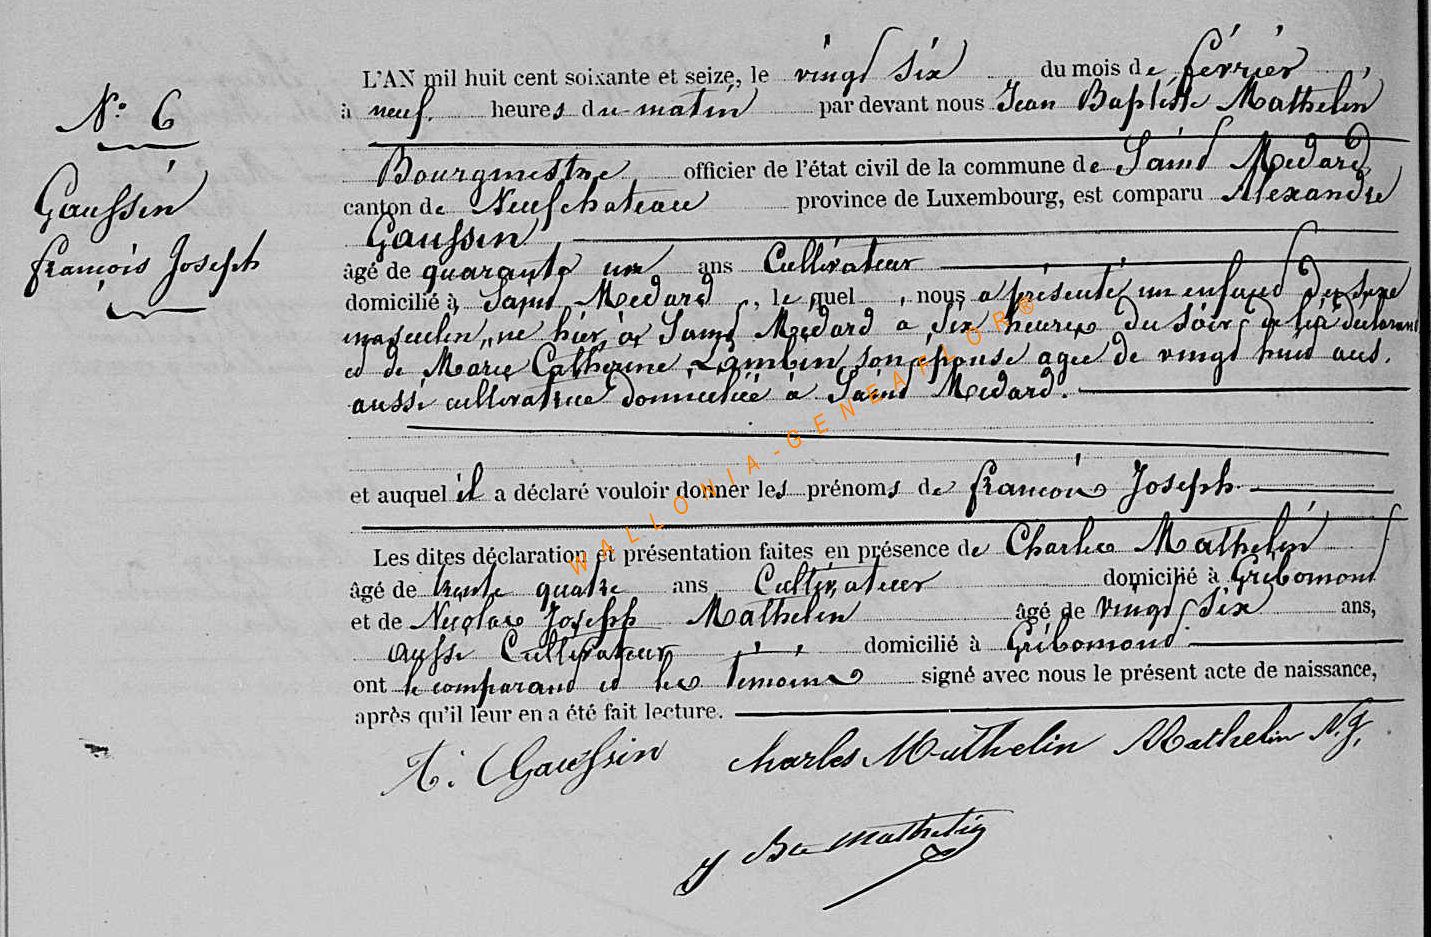 N° 6
Gaussin
françois Joseph
L'AN mil huit cent soixante et seize, le vingt six du mois de février,
à neuf heures du matin par devant nous Jean Baptiste Mathelin
Bourgmestre officier de l'état civil de la commune de Saint Medard
canton de Neufchateau province de Luxembourg, est comparu Alexandre
Gaussin
âgé de quarante un ans Cultivateur
domicilié à Saint Medard, le quel, nous a présenté un enfant du sexe
masculin, né hier à Saint Médard a six heures du soir de lui déclarant
et de Marie Catherine Lambin son épouse agée de vingt huit ans,
aussi cultivatrice domiciliée à Saint Medard.
et auquel il a déclaré vouloir donner les prénoms de françois Joseph
Les dites déclaration et présentation faites en présence de Charles Mathelin
âgé de trente quatre ans Cultivateur domicilié à Gribomont
et de Nicolas Joseph Mathelin âgé de vingt six ans,
aussi Cultivateur domicilié à Gribomont
ont le comparant et les témoins signé avec nous le présent acte de naissance,
après qu'il leur en a été fait lecture.
A. Gaussin Charles Mathelin Mathelin N.J.
J Bte Mathelin
WALLONIA-GENEAFLOR®